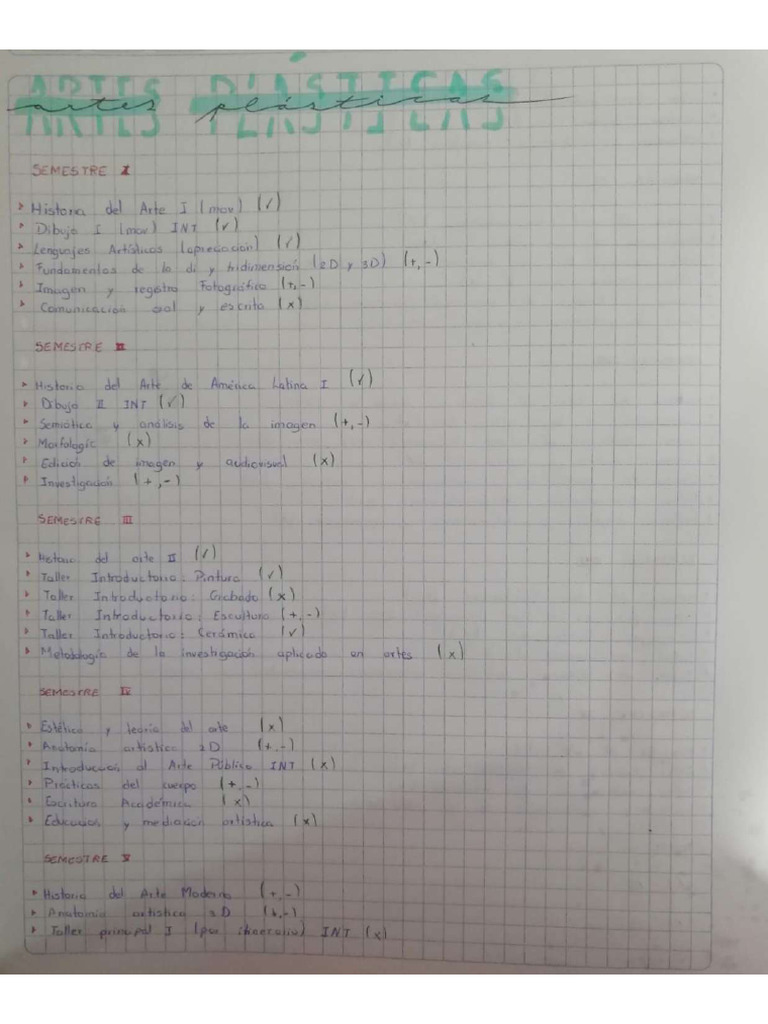 ARTES PLÁSTICAS
artes plásticas
SEMESTRE I
Historia del Arte I (mov) (✓)
Dibujo I (mov) INT (✓)
Lenguajes Artísticos (apreciación) (✓)
Fundamentos de la di y tridimensión (2D y 3D) (+,-)
Imagen y registro Fotográfico (+,-)
Comunicación oral y escrita (x)
SEMESTRE II
Historia del Arte de América Latina I (✓)
Dibujo II INT (✓)
Semiótica y análisis de la imagen (+,-)
Morfología (x)
Edición de imagen y audiovisual (x)
Investigación (+,-)
SEMESTRE III
Historia del arte II (✓)
Taller Introductorio: Pintura (✓)
Taller Introductorio: Grabado (x)
Taller Introductorio: Escultura (+,-)
Taller Introductorio: Cerámica (✓)
Metodología de la investigación aplicada en artes (x)
SEMESTRE IV
Estética y teoría del arte (x)
Anatomía artística 2D (+,-)
Introducción al Arte Público INT (x)
Prácticas del cuerpo (+,-)
Escritura Académica (x)
Educación y mediación artística (x)
SEMESTRE V
Historia del Arte Moderno (+,-)
Anatomía artística 2D (+,-)
Taller principal I (por itinerario) INT (x)